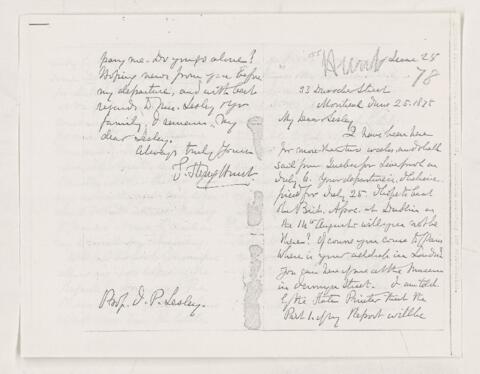 pany me. Do you go alone?
Hoping news from you before
my departure, and with best
regards to Mrs. Lesley & yr
family, I remain, my
dear Lesley,
Always truly yours
T. Sterry Hunt
Prof. J. P. Lesley.
Hunt June 25
78
33 Durocher Street
Montreal June 25. 1878
My Dear Lesley
I have been here
for more than two weeks and shall
sail from Quebec for Liverpool on
July 6. Your departure is, I believe,
fixed for July 25. I hope to be at
the Brit. Assoc. at Dublin on
the 14th August will you not be
there? Of course you come to Paris
Where is your address in London?
You can hear of me at the Museum
in Jermyn Street. I am told
by the State Printer that the
Part 1. of my Report will be